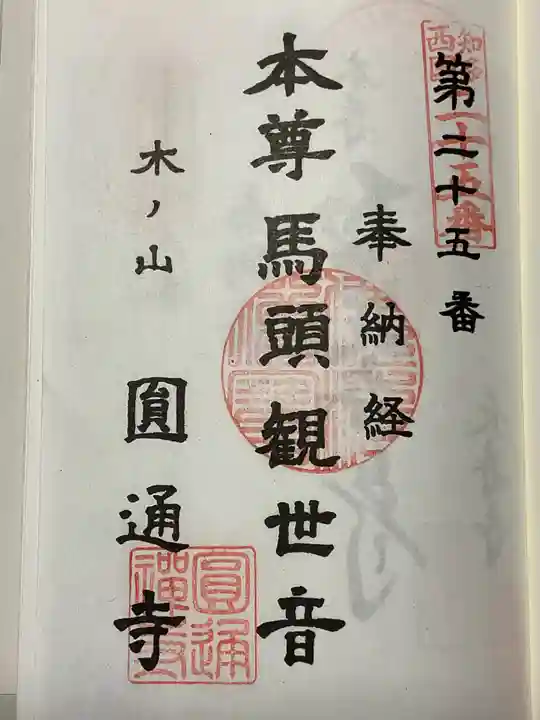 第二十五番
奉納経
本尊馬頭観世音
木ノ山
圓通寺
知多
西国
二十五番
圓通
禪寺